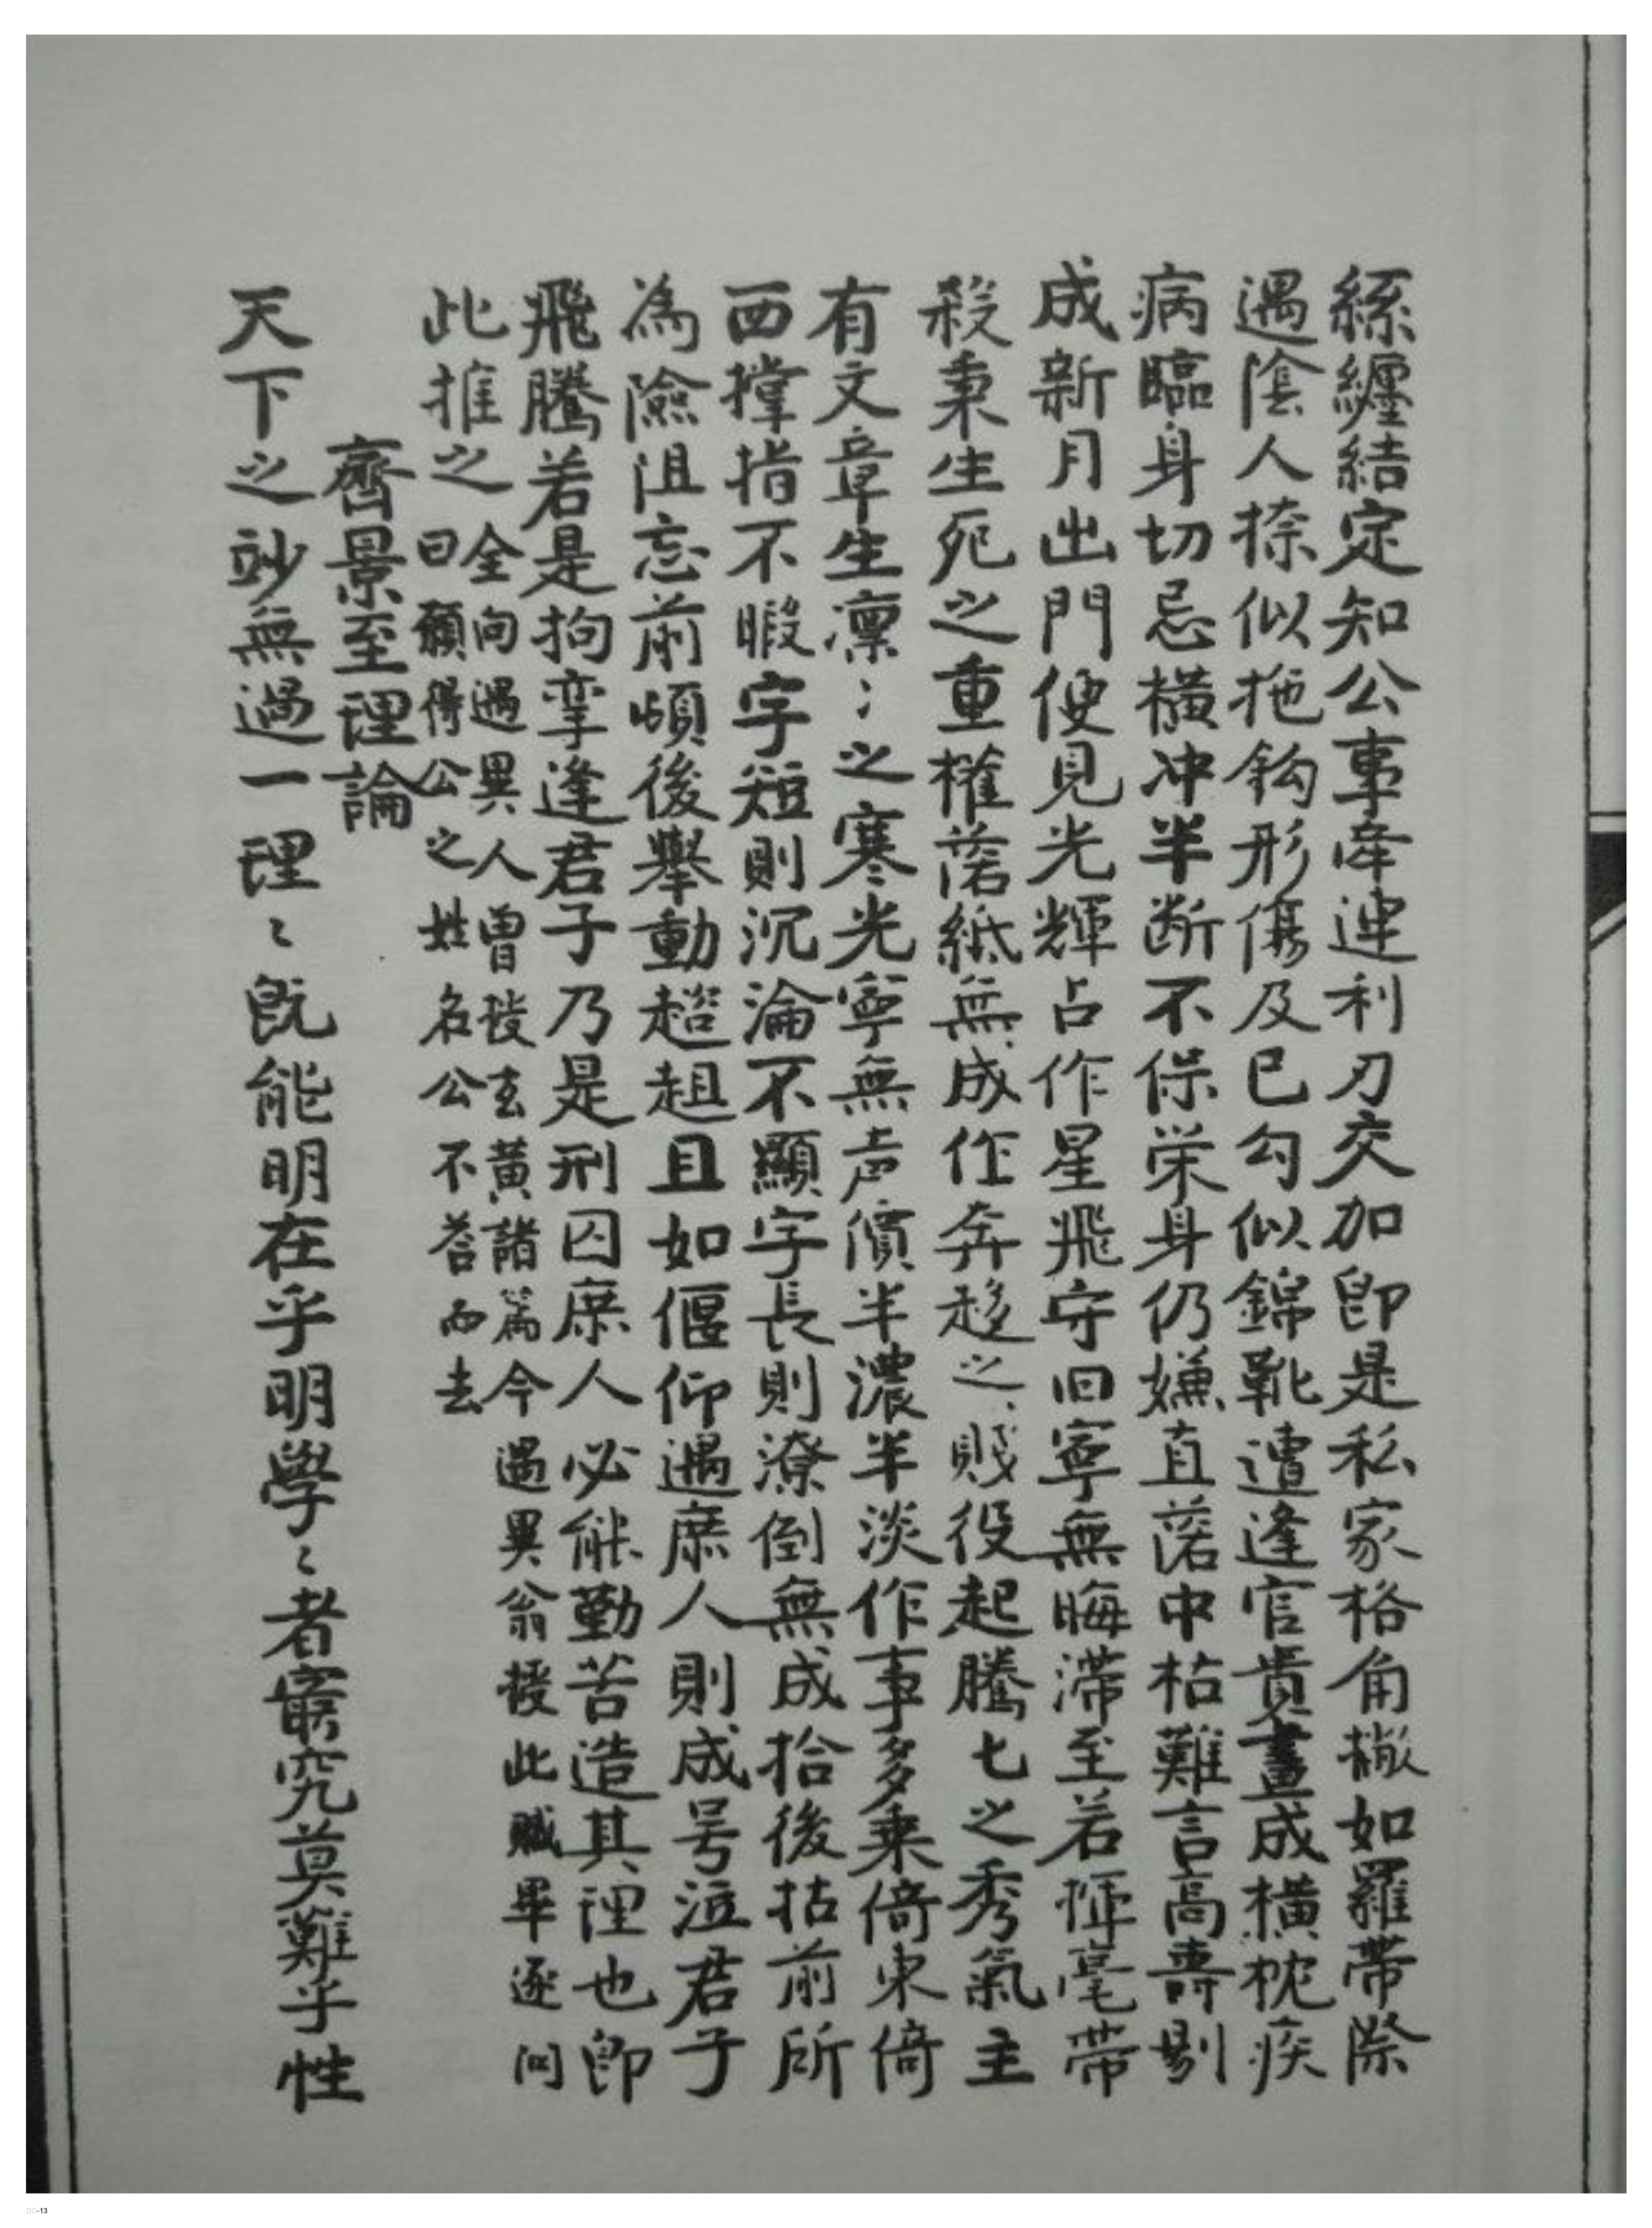 絲纏結定知公事牽連利刃交加即是私家格角撇如羅帶際
遇陰人捺似拖鈎形傷及已勾似錦靴遭逢官貴畫成橫枕疾
病臨身切忌橫冲半断不保栄身仍嫌直落中枯難言高壽剔
成新月出門便見光輝占作星飛守旧寧無晦滯至若揮毫帶
殺秉生死之重權落紙無成作奔移之賤役起騰七之秀氣主
有文章生凛〻之寒光寧無声價半濃半淡作事多乗倚東倚
西撑指不暇字短則沉淪不顯字長則潦倒無成拾後拈前所
為險阻忘前頋後舉動趑趄且如偃仰遇庶人則成号泣君子
飛騰若是拘挛逢君子乃是刑囚庶人必能勤苦造其理也即
此推之
全向遇異人曾授玄黃諸篇今遇異翁授此賦畢逐问
曰願得公之姓名公不荅而去
齊景至理論
天下之玅無過一理〻既能明在乎明學〻者窮究莫難乎性
□□-13